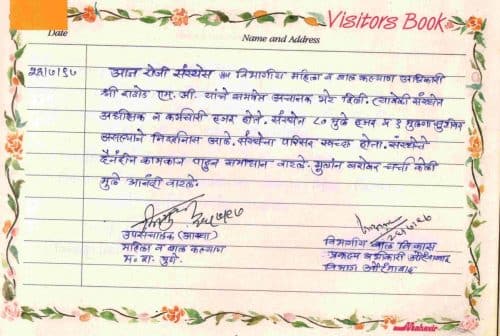 Visitors Book
Date
Name and Address
आज रोजी संस्थेस विभागीय महिला व बाल कल्याण अधिकारी
श्री राठोड एम. जी. यांचे समवेत अचानक भेट दिली. त्यावेळी संस्थेत
अधीक्षक व कर्मचारी हजर होते. संस्थेत ८० मुले हजर व १ मुलगा
असल्याचे निदर्शनास आले. संस्थेचा परिसर स्वच्छ होता. संस्थेचे
दैनंदीन कामकाज पाहुन समाधान वाटले. मुलांन बरोबर चर्चा केली
मुले आनंदी वाटले.
उपसंचालक
महिला व बाल कल्याण
म. रा. पुणे.
विभागीय बाल विकास
प्रकल्प अधिकारी औरंगाबाद
विभाग औरंगाबाद
Mahavir